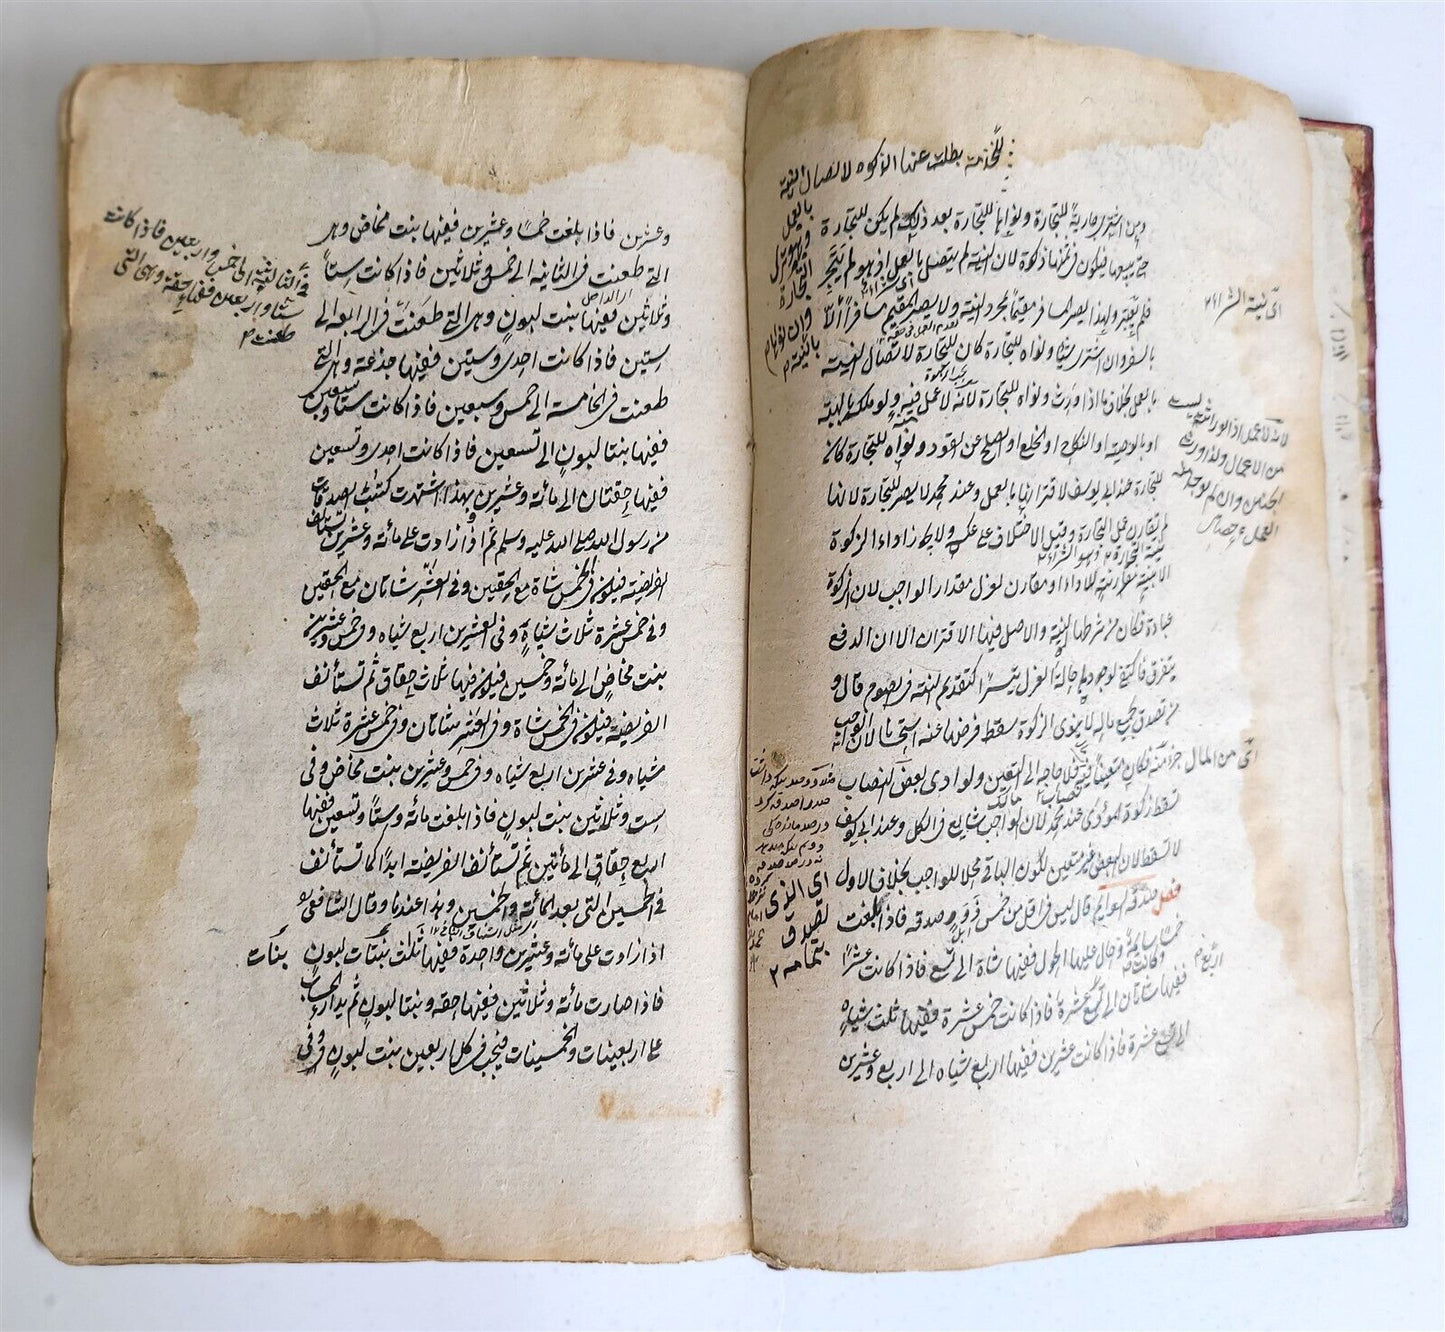 للخدمة بطلت عنها الزكوة لاتصال النية
بالعمل
وهو ترك
التجارة
وان نواها
ومن اشترى جارية للتجارة ونواها للتجارة بعد ذلك لم يكن للتجارة
حتى يبيعها فيكون فى ثمنها زكوة لان النية لم يتصل بالعمل اذ هو لم يتجر
فلم يعتبر ولهذا يصير المسافر مقيما بمجرد النية ولا يصير المقيم مسافرا الا
بالسفر وان اشترى شيئا ونواه للتجارة كان للتجارة لاتصال النية
بالعمل بخلاف ما اذا ورث ونواه للتجارة لانه لا عمل فيه ولو ملكه بالهبة
او بالوصية او النكاح او الخلع او الصلح عن القود ونواه للتجارة كان
للتجارة عند ابى يوسف لاقترانها بالعمل وعند محمد لا يصير للتجارة لانها
لم تقارن عمل التجارة وقيل الاختلاف على عكسه ولا يجوز اداء الزكوة
الا بنية مقارنة للاداء او مقارن لعزل مقدار الواجب لان الزكوة
عبادة فكان من شرطها النية والاصل فيها الاقتران الا ان الدفع
يتفرق فاكتفى بوجودها حالة العزل تيسيرا كتقديم النية فى الصوم قال و
من تصدق بجميع ماله لا ينوى الزكوة سقط فرضها عنه استحسانا لان الواجب
جزء منه فكان متعينا فيه فلا حاجة الى التعيين ولو ادى بعض النصاب
سقط زكوة المؤدى عند محمد لان الواجب شايع فى الكل وعند ابى يوسف
لا تسقط لان البعض غير متعين لكون الباقى محلا للواجب بخلاف الاول
فصل صدقة السوايم قال ليس فى اقل من خمس ذود صدقة فاذا بلغت
خمسا سايمة وحال عليها الحول ففيها شاة الى تسع فاذا كانت عشرا
ففيها شاتان الى اربع عشرة فاذا كانت خمس عشرة ففيها ثلث شياه
الى تسع عشرة فاذا كانت عشرين ففيها اربع شياه الى اربع وعشرين
اى من المال
اى الذى
تصدق
بتمامه
اربع
وعشرين فاذا بلغت خمسا وعشرين ففيها بنت مخاض وهى
التى طعنت فى الثانية الى خمس وثلاثين فاذا كانت ستا
وثلاثين ففيها بنت لبون وهى التى طعنت فى الرابعة الى
ستين فاذا كانت احدى وستين ففيها جذعة وهى التى
طعنت فى الخامسة الى خمس وسبعين فاذا كانت ستا وسبعين
ففيها بنتا لبون الى تسعين فاذا كانت احدى وتسعين
ففيها حقتان الى مائة وعشرين بهذا اشتهرت كتب الصدقات
من رسول الله صلى الله عليه وسلم ثم اذا زادت على مائة وعشرين تستأنف
الفريضة فيكون فى الخمس شاة مع الحقتين وفى العشر شاتان مع الحقتين
وفى خمس عشرة ثلاث شياه وفى العشرين اربع شياه وفى خمس وعشرين
بنت مخاض الى مائة وخمسين فيكون فيها ثلاث حقاق ثم تستأنف
الفريضة فيكون فى الخمس شاة وفى العشر شاتان وفى خمس عشرة ثلاث
شياه وفى عشرين اربع شياه وفى خمس وعشرين بنت مخاض وفى
ست وثلاثين بنت لبون فاذا بلغت مائة وستا وتسعين ففيها
اربع حقاق الى مأتين ثم تستأنف الفريضة ابدا كما تستأنف
فى الخمسين التى بعد المائة والخمسين وهذا عندنا وقال الشافعى
اذا زادت على مائة وعشرين واحدة ففيها ثلث بنات لبون
فاذا صارت مائة وثلاثين ففيها حقة وبنتا لبون ثم يدار الحساب
على اربعينات والخمسينات فيجب فى كل اربعين بنت لبون وفى
فى الثالثة الى خمس واربعين فاذا كانت
ستا واربعين ففيها حقة وهى التى
طعنت
بنات